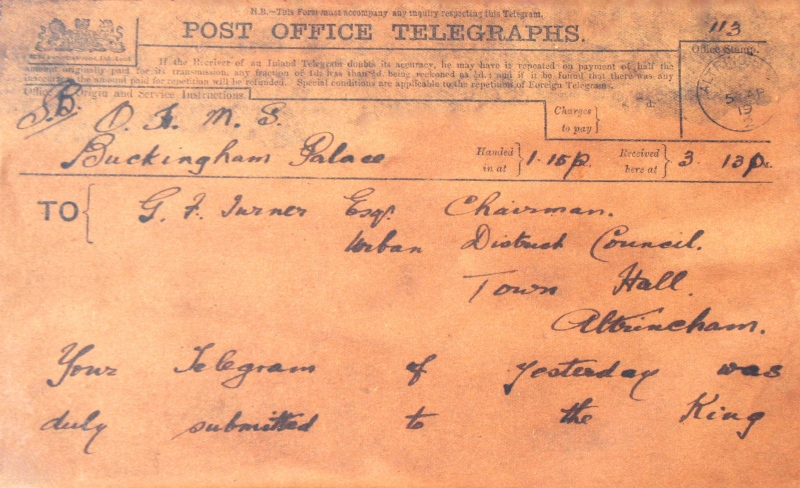 N.B.—This Form must accompany any inquiry respecting this Telegram.
POST OFFICE TELEGRAPHS.
113
Office Stamp.
If the Receiver of an Inland Telegram doubts its accuracy, he may have it repeated on payment of half the
amount originally paid for its transmission, any fraction of 1d. less than ½d. being reckoned as ½d.; and if it be found that there was any
the amount paid for repetition will be refunded. Special conditions are applicable to the repetition of Foreign Telegrams.
Office of Origin and Service Instructions.
Charges to pay } d.
O. H. M. S.
Buckingham Palace
Handed in at } 1.15p. Received here at } 3.13p.
TO { G. F. Turner Esqr. Chairman.
Urban District Council.
Town Hall.
Altrincham.
Your Telegram of yesterday was
duly submitted to the King